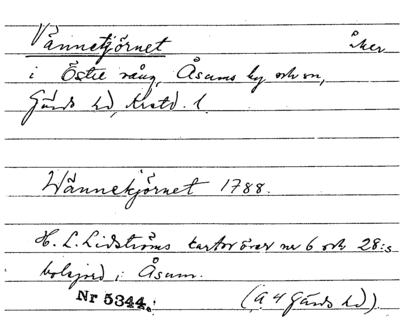 Vännetjörnet åker
i Östre vång, Åsums by och sn,
Gärds hd, Krstd. l.
Wännekjörnet 1788.
H. L. Lidströms kartor över nr 6 och 28:s
bolsjord i Åsum.
Nr 5344. (A 4 Gärds hd).